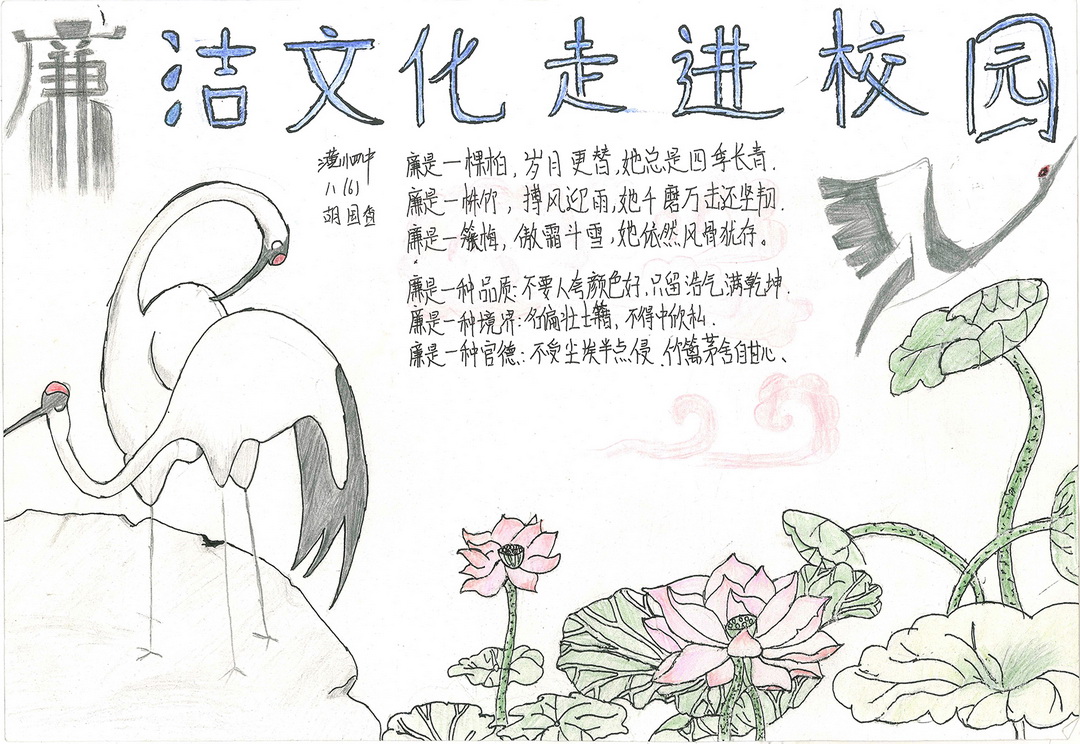 廉洁文化走进校园
潢川四中
八(6)
胡国
廉是一棵柏，岁月更替，她总是四季长青.
廉是一株竹，搏风迎雨，她千磨万击还坚韧.
廉是一簇梅，傲霜斗雪，她依然风骨犹存。
廉是一种品质:不要人夸颜色好,只留浩气满乾坤.
廉是一种境界:名偏壮士籍，不得中欣私.
廉是一种官德:不受尘埃半点侵.竹篱茅舍自甘心、